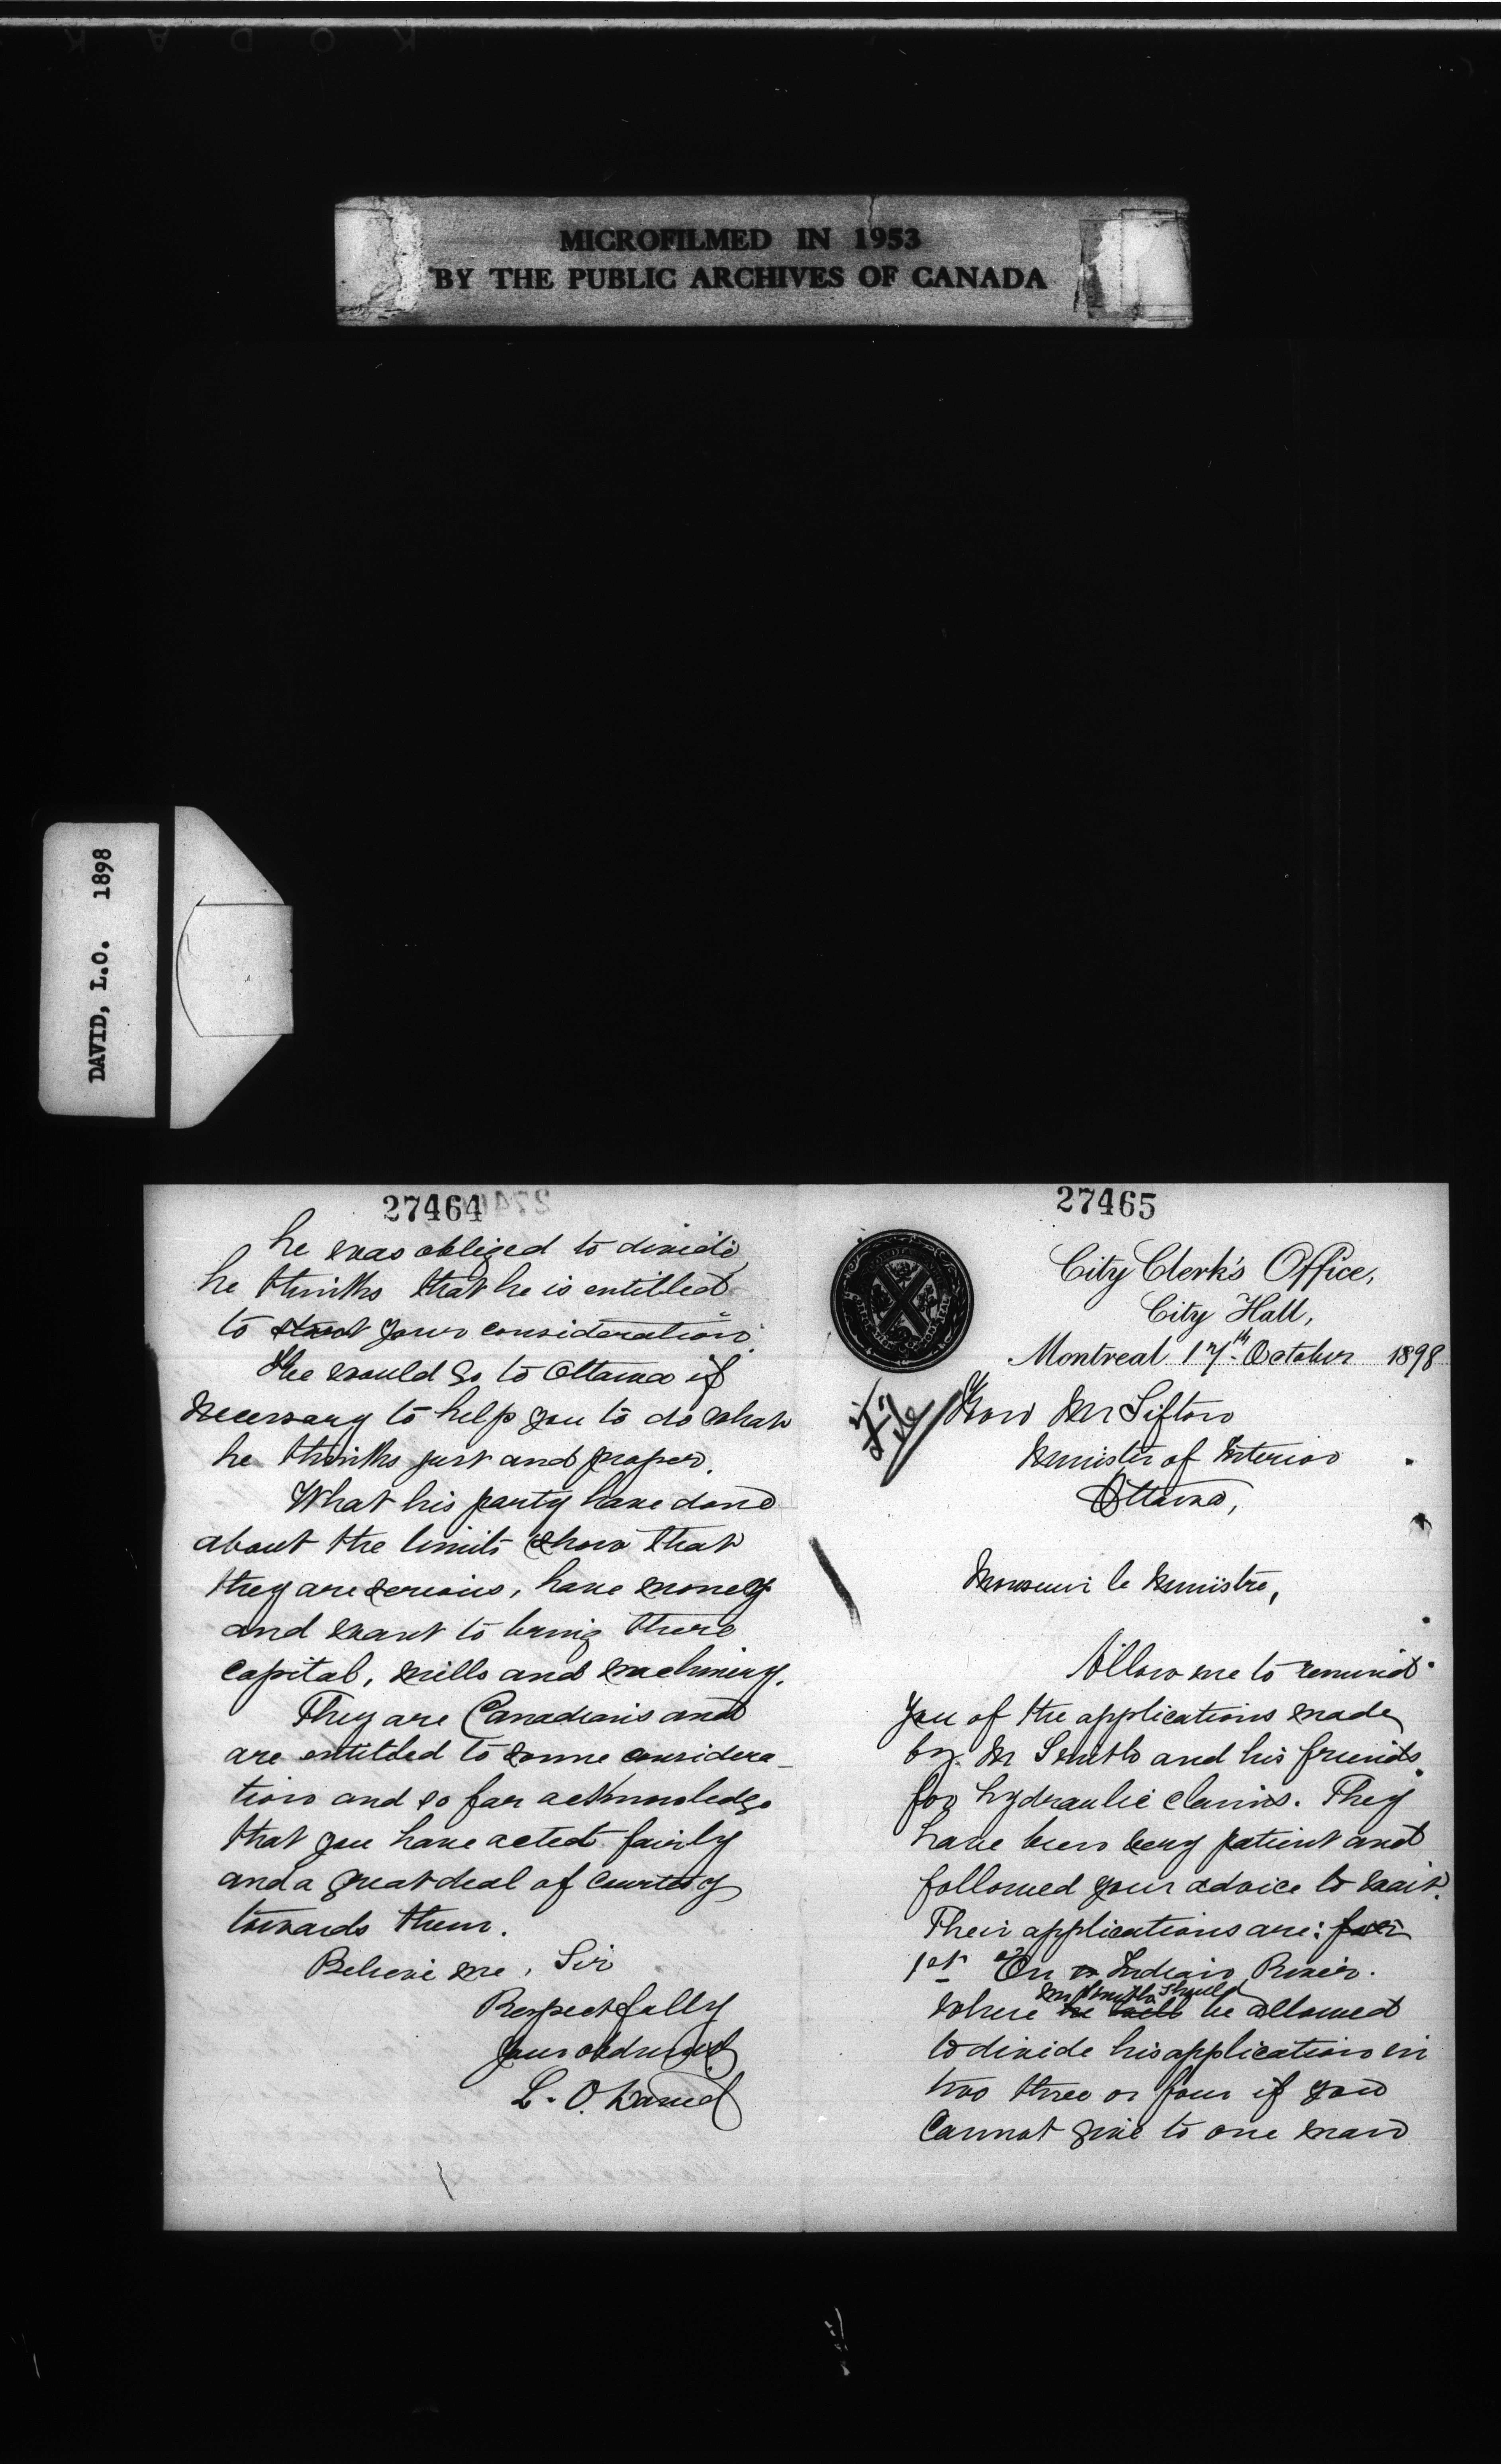 MICROFILMED IN 1953
BY THE PUBLIC ARCHIVES OF CANADA
DAVID, L.O. 1898
27464
he was obliged to divide
he thinks that he is entitled
to your consideration.
He would go to Ottawa if
necessary to help you to do what
he thinks just and proper.
What his party have done
about the limits show that
they are serious, have money
and want to bring there
capital, mills and machinery.
They are Canadians and
are entitled to some considera-
tion and so far acknowledge
that you have acted fairly
and a great deal of courtesy
towards them.
Believe me, Sir
Respectfully
your obdt
L. O. David
27465
City Clerk's Office,
City Hall,
Montreal 17th October 1898
File
Hon Mr Sifton
Minister of Interior
Ottawa,
Monsieur le Ministre,
Allow me to remind
you of the applications made
by Mr Smith and his friends
for hydraulic claims. They
have been very patient and
followed your advice to wait.
Their applications are: for
1st On Indian River.
Mr Smith should
where be allowed
to divide his application in
two three or four if you
cannot give to one man